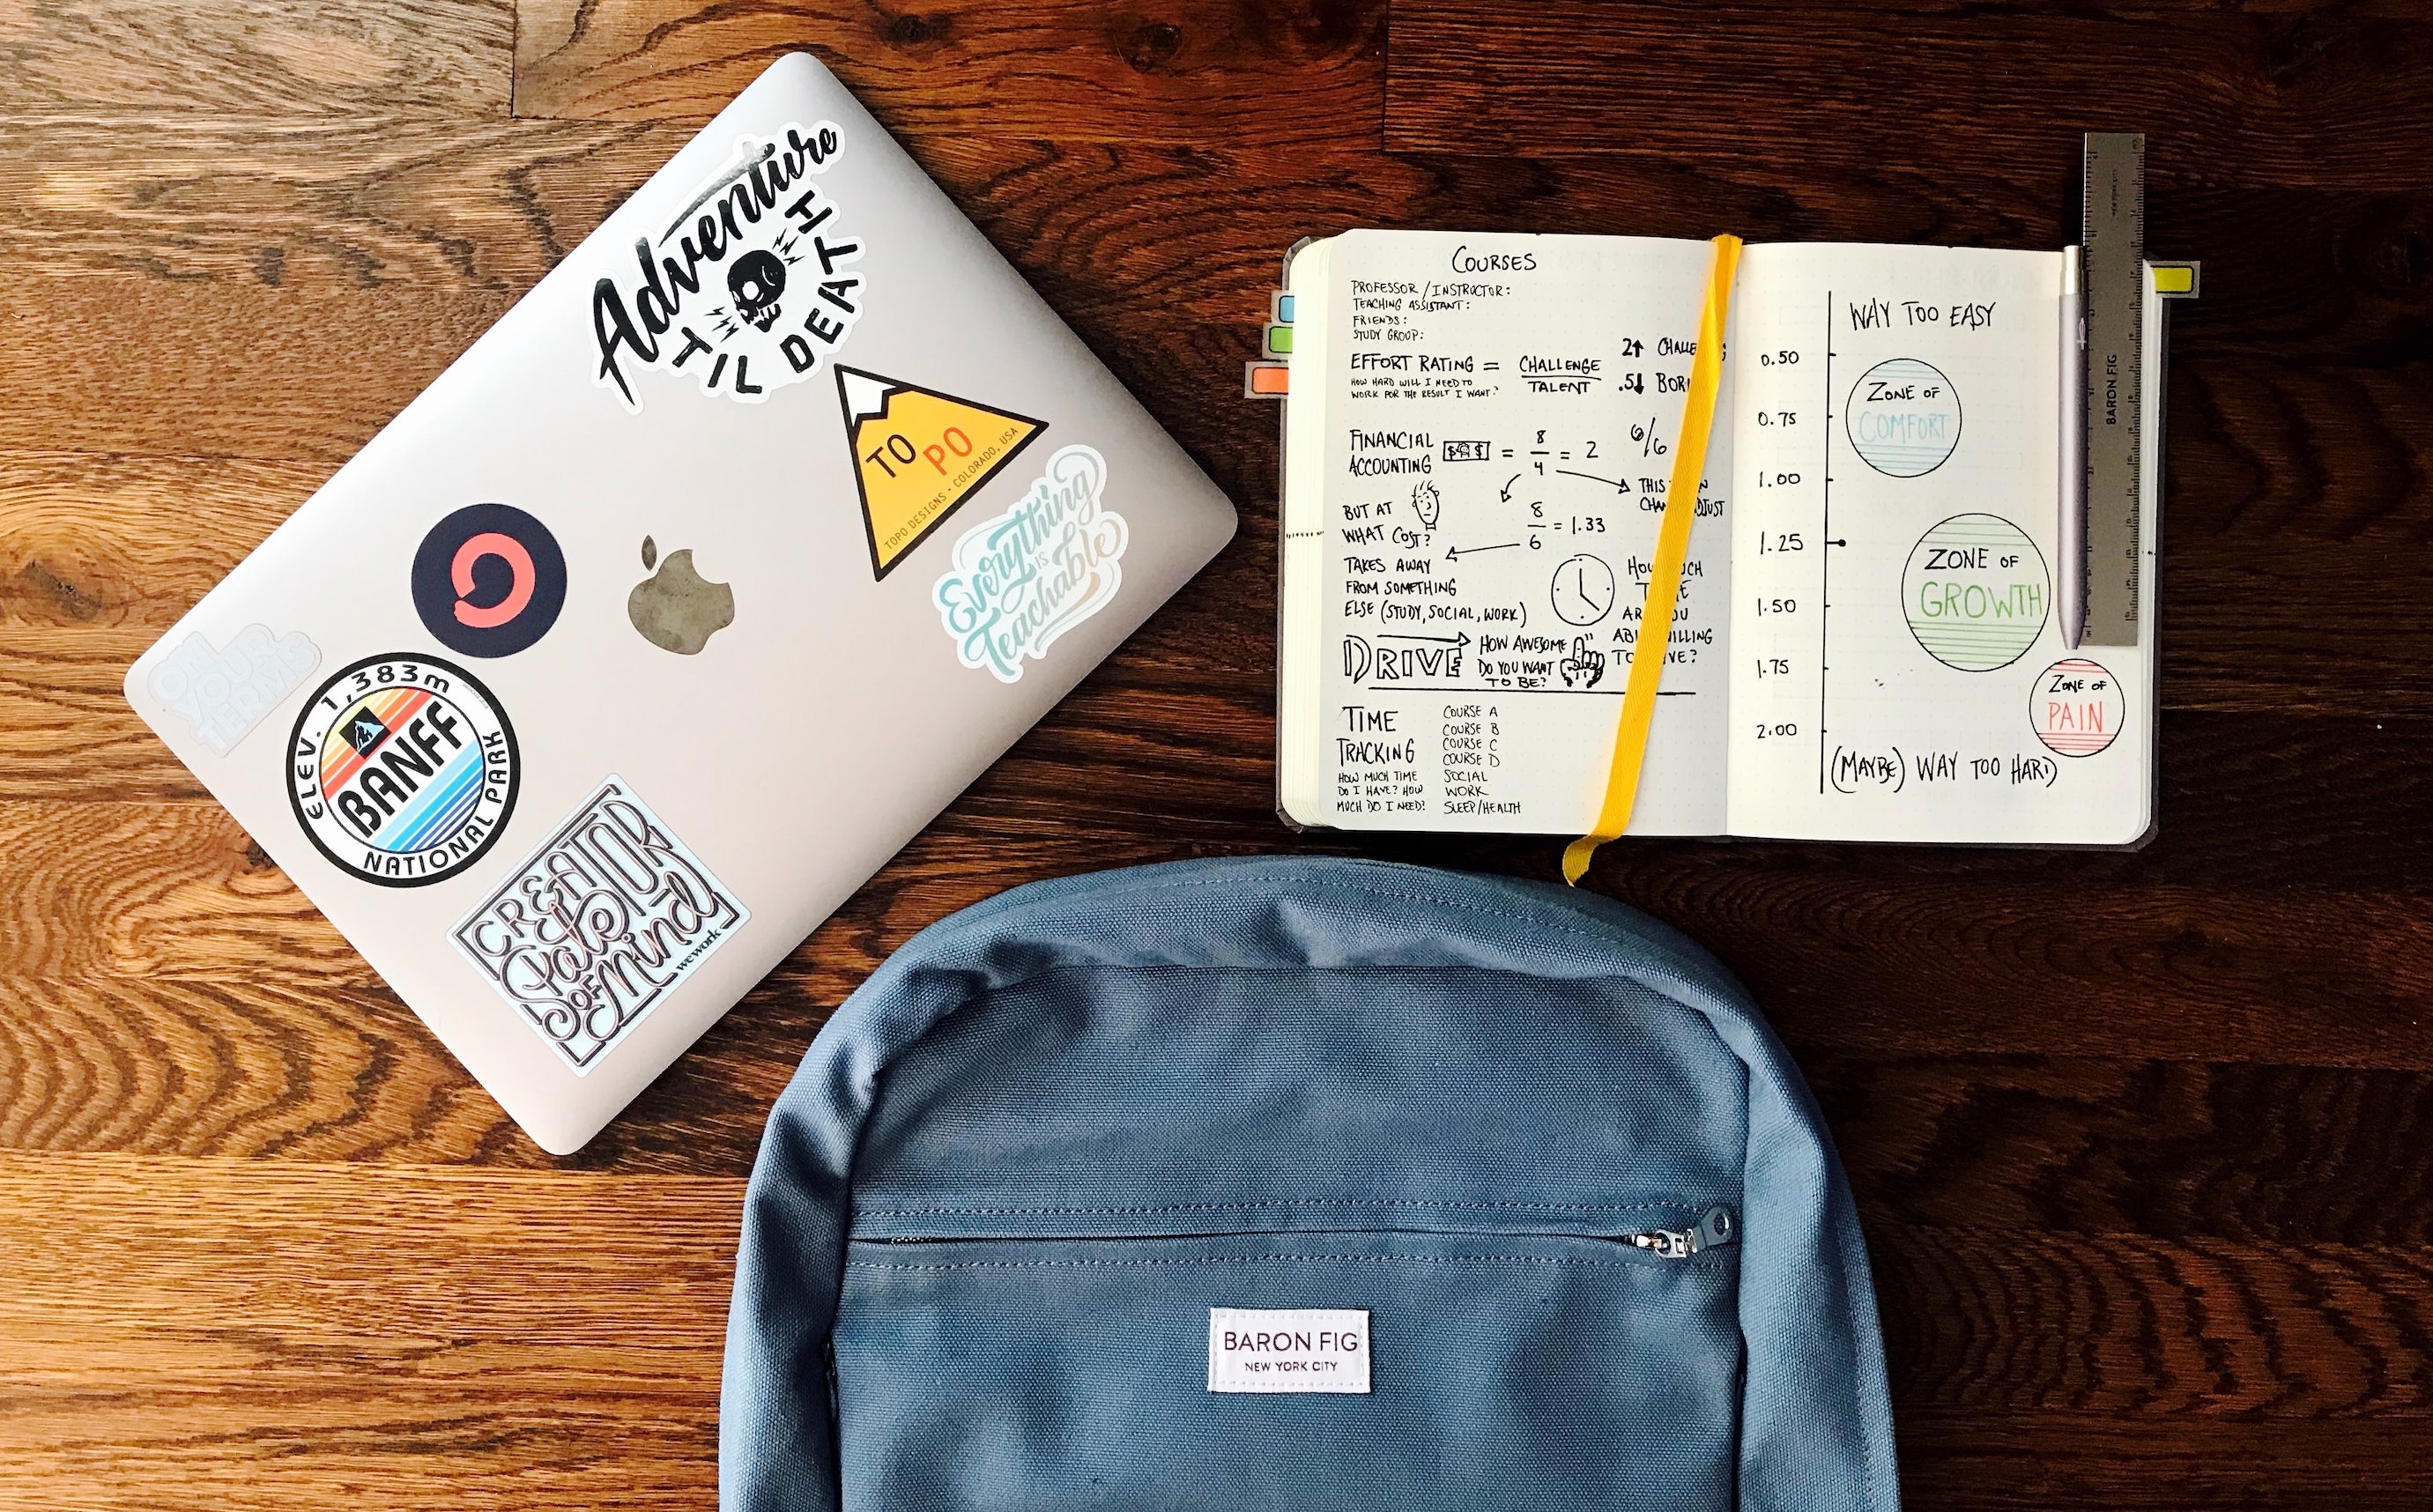 Adventure
TIL DEATH
TO PO
TOPO DESIGNS • COLORADO, USA
Everything
IS
Teachable
ON
YOUR
TERMS
ELEV. 1,383m
BANFF
NATIONAL PARK
CREATOR
State
OF
Mind
wework
COURSES
PROFESSOR / INSTRUCTOR:
TEACHING ASSISTANT:
FRIENDS:
STUDY GROUP:
EFFORT RATING = CHALLENGE
TALENT
HOW HARD WILL I NEED TO
WORK FOR THE RESULT I WANT?
2↑
.5↓
FINANCIAL
ACCOUNTING
$ $ = 8/4 = 2
6/6
THIS
BUT AT
WHAT COST?
8/6 = 1.33
TAKES AWAY
FROM SOMETHING
ELSE (STUDY, SOCIAL, WORK)
TO
DRIVE
HOW AWESOME
DO YOU WANT
TO BE?
TIME
TRACKING
HOW MUCH TIME
DO I HAVE? HOW
MUCH DO I NEED?
COURSE A
COURSE B
COURSE C
COURSE D
SOCIAL
WORK
SLEEP/HEALTH
WAY TOO EASY
0.50
ZONE OF
COMFORT
0.75
1.00
1.25
ZONE OF
GROWTH
1.50
1.75
ZONE OF
PAIN
2.00
(MAYBE) WAY TOO HARD
BARON FIG
BARON FIG
NEW YORK CITY